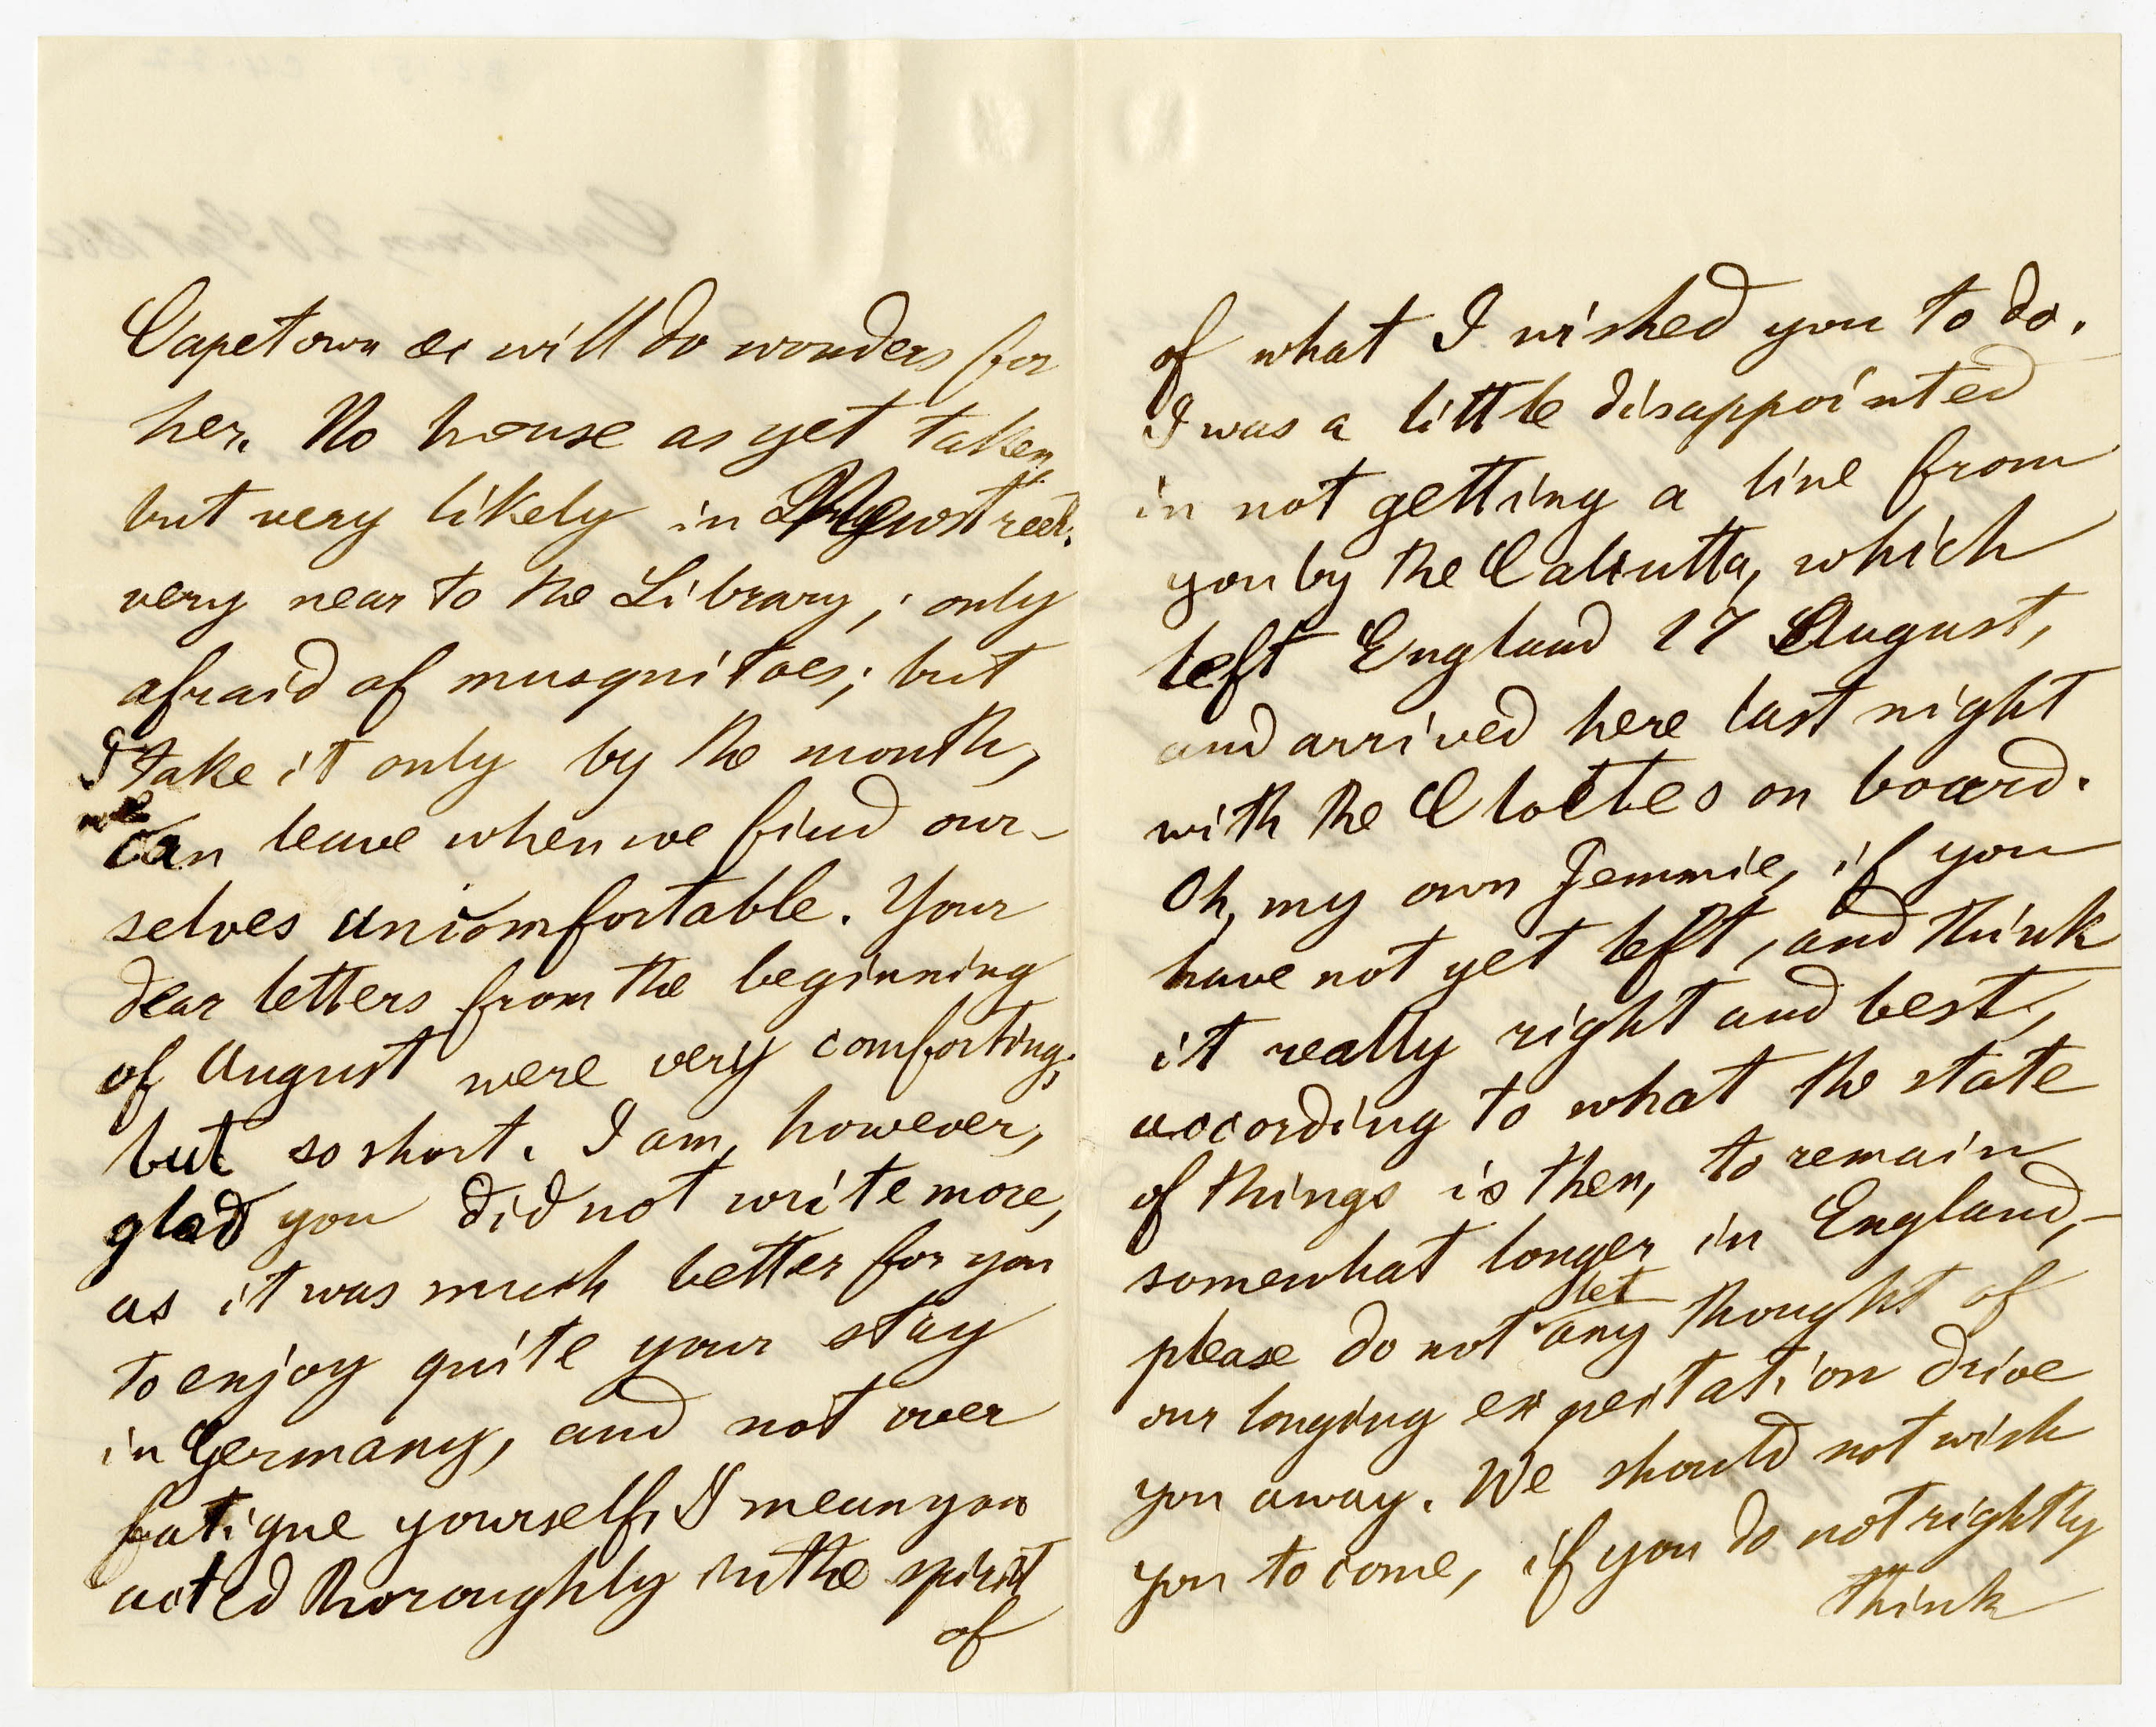 Capetown &c will do wonders for
her. No house as yet taken,
but very likely in New street.
very near to the Library; only
afraid of musquitoes; but
I take it only by the month,
we can leave when we find our-
selves uncomfortable. Your
dear letters from the beginning
of August were very comforting;
but so short. I am, however,
glad you did not write more,
as it was much better for you
to enjoy quite your stay
in Germany, and not over
fatigue yourself, I mean you
acted thoroughly in the spirit
of
of what I wished you to do.
I was a little disappointed
in not getting a line from
you by the Calcutta, which
left England 17 August,
and arrived here last night
with the Cloetes on board.
Oh, my own Jemmie, if you
have not yet left, and think
it really right and best,
according to what the state
of things is then, to remain
somewhat longer in England,-
please do not let any thought of
our longing expectation drive
you away. We should not wish
you to come, if you do not rightly
think